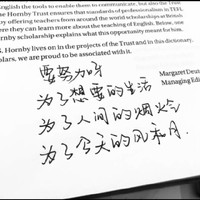 English the tools to enable them to communicate, but also the Trust
he Hornby Trust ensures that standards of professionalism in TEFL
by offering teachers from around the world scholarships at British
ere they can learn more about the teaching of English. Below, one
ornby scholarship explains what this opportunity meant for him.
. Hornby lives on in the projects of the Trust and in this dictionary.
olars, we are proud to be associated with it.
Margaret Deu
Managing Edi
要努力呀
为了想要的生活
为了人间的烟火气
为了今天的风和月.